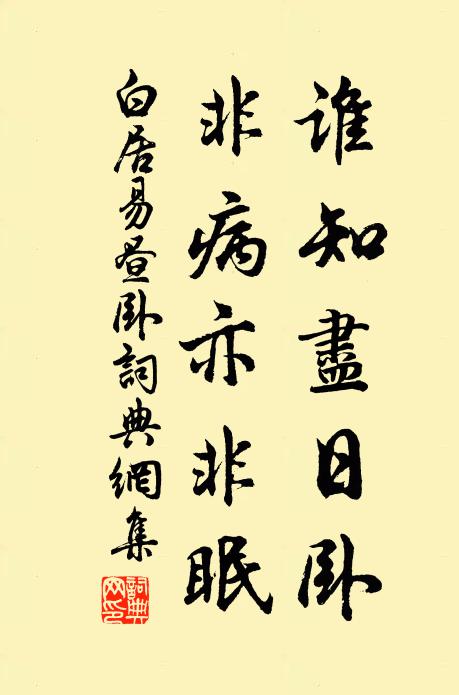 誰知盡日卧
非病亦非眠
白居易晝卧詞典網集
詞典网印